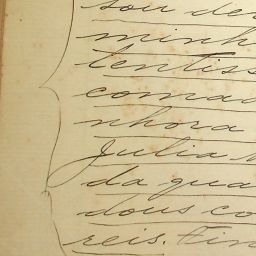 sou de
minh
tentiss
coma
nhora
Julia
da qua
dous co
reis. Fin